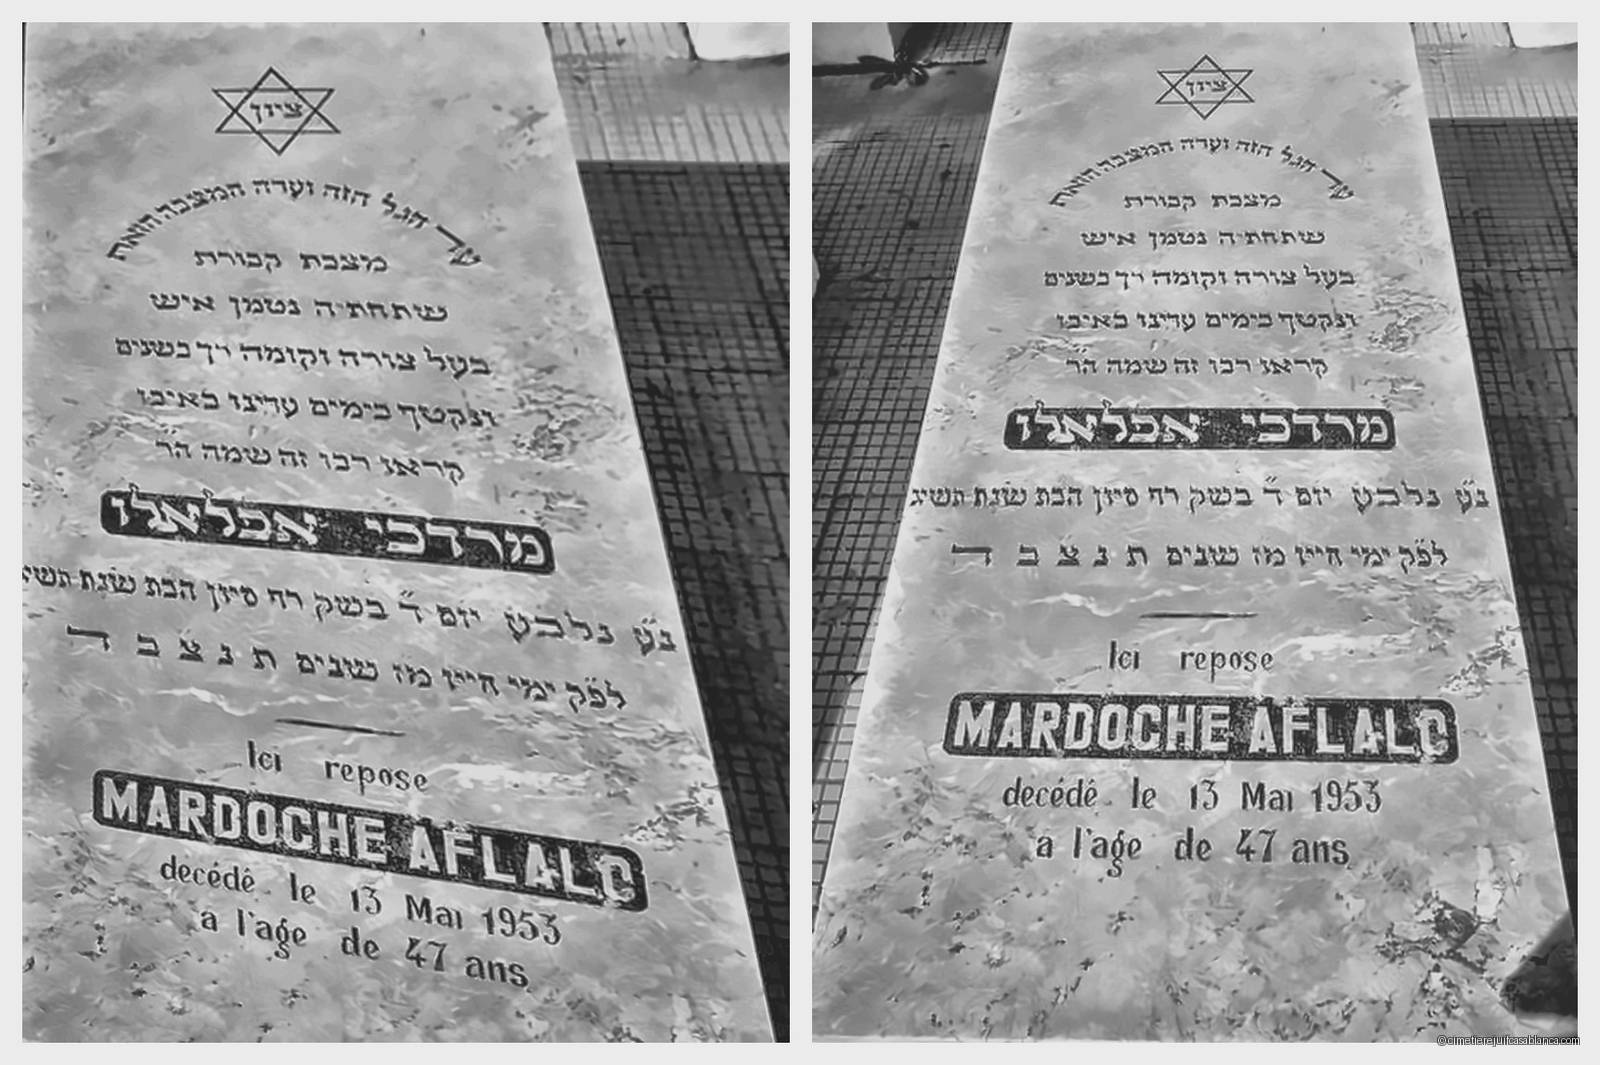 ציון
עד הגל הזה ועדה המצבה הזאת
מצבת קבורת
שתחתיה נטמן איש
בעל צורה וקומה רך בשנים
ונקטף בימים עדינו באיבו
קראו רבו זה שמה הר
מרדכי אפלאלו
נ״ע גלבע יום ד׳ בשק רח סיון הבת שנת תשי
לפ״ק ימי חייו מז שנים ת נ צ ב ה
Ici repose
MARDOCHE AFLALO
decédé le 13 Mai 1953
a l'age de 47 ans
ציון
עד הגל הזה ועדה המצבה הזאת
מצבת קבורת
שתחתיה נטמן איש
בעל צורה וקומה רך בשנים
ונקטף בימים עדינו באיבו
קראו רבו זה שמה הר
מרדכי אפלאלו
נ״ע גלבע יום ד׳ בשק רח סיון הבת שנת תשיג
לפ״ק ימי חייו מז שנים ת נ צ ב ה
Ici repose
MARDOCHE AFLALO
decédé le 13 Mai 1953
a l'age de 47 ans
©cimetierejuifcasablanca.com